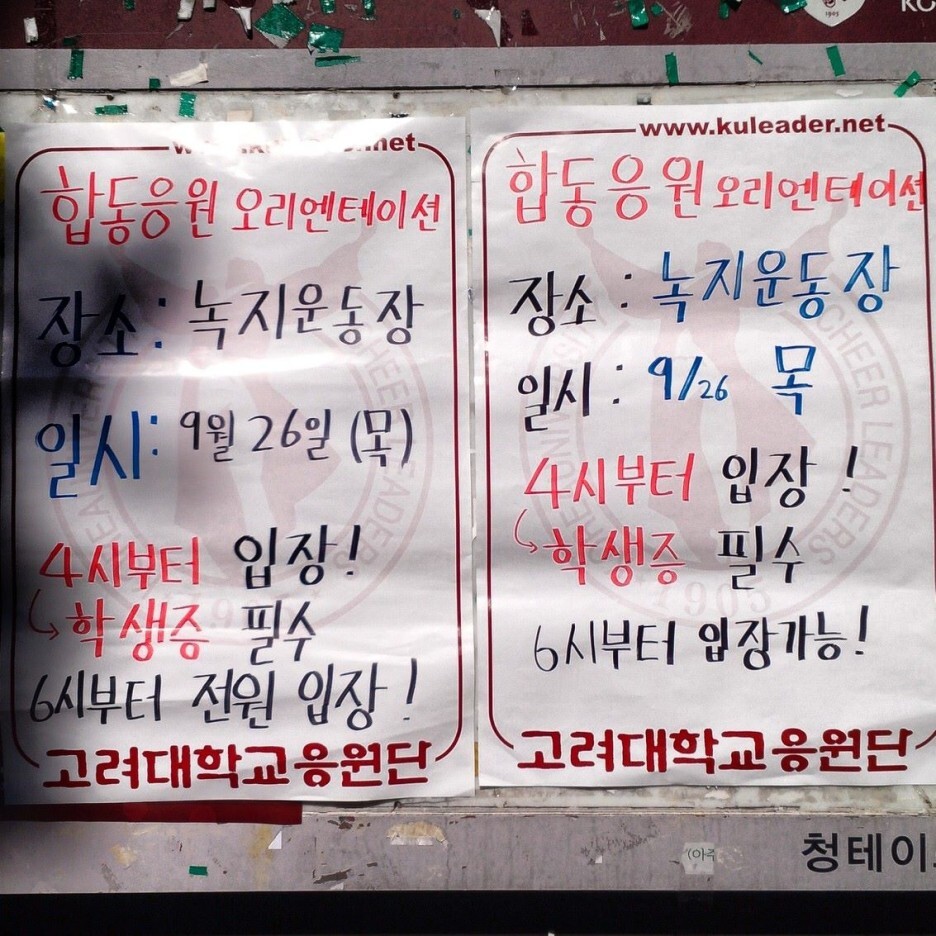 KO
1905
www.kuleader.net
합동응원 오리엔테이션
장소: 녹지운동장
일시: 9월 26일 (목)
4시부터 입장!
학생증 필수
6시부터 전원 입장!
CHEER LEADERS
고려대학교응원단
www.kuleader.net
합동응원 오리엔테이션
장소: 녹지운동장
일시: 9/26 목
4시부터 입장!
학생증 필수
6시부터 입장가능!
CHEER LEADERS
1905
고려대학교응원단
(아주
청테이